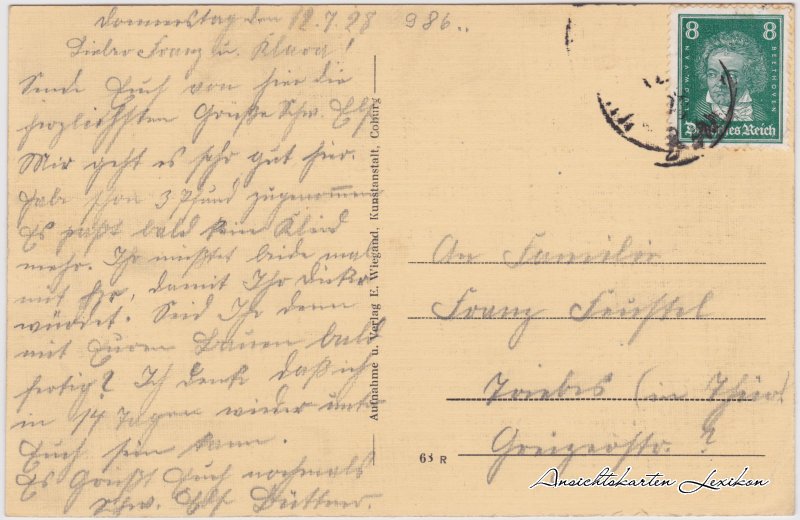 Donnerstag den 12.7.28
986..
Lieber Franz u. Klara!
Sende Euch von hier die
herzlichsten Grüße Schw. Else
Mir geht es sehr gut hier.
Habe schon 3 Pfund zugenommen
Es paßt bald kein Kleid
mehr. Ihr müßtet beide mal
mit hier, damit Ihr dicker
würdet. Seid Ihr denn
mit Euren Bauen bald
fertig? Ich denke daß ich
in 14 Tagen wieder unter
Euch sein kann.
Es Grüßt Euch nochmals
Schw. Else Büttner.
Aufnahme u. Verlag E. Wiegand, Kunstanstalt, Coburg
8 8
LUDW. VAN
BEETHOVEN
Deutsches Reich
An Familie
Franz Feustel
Triebes (in Thür.
Greizerstr. ?
63 R
Ansichtskarten Lexikon